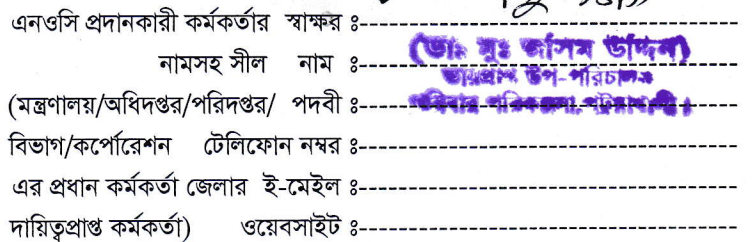 এনওসি প্রদানকারী কর্মকর্তার স্বাক্ষর ঃ
নামসহ সীল নাম ঃ (ডাঃ মুঃ জসিম উদ্দিন)
ভারপ্রাপ্ত উপ-পরিচালক
(মন্ত্রণালয়/অধিদপ্তর/পরিদপ্তর/ পদবী ঃ পরিবার পরিকল্পনা, পটুয়াখালী।
বিভাগ/কর্পোরেশন টেলিফোন নম্বর ঃ
এর প্রধান কর্মকর্তা জেলার ই-মেইল ঃ
দায়িত্বপ্রাপ্ত কর্মকর্তা) ওয়েবসাইট ঃ